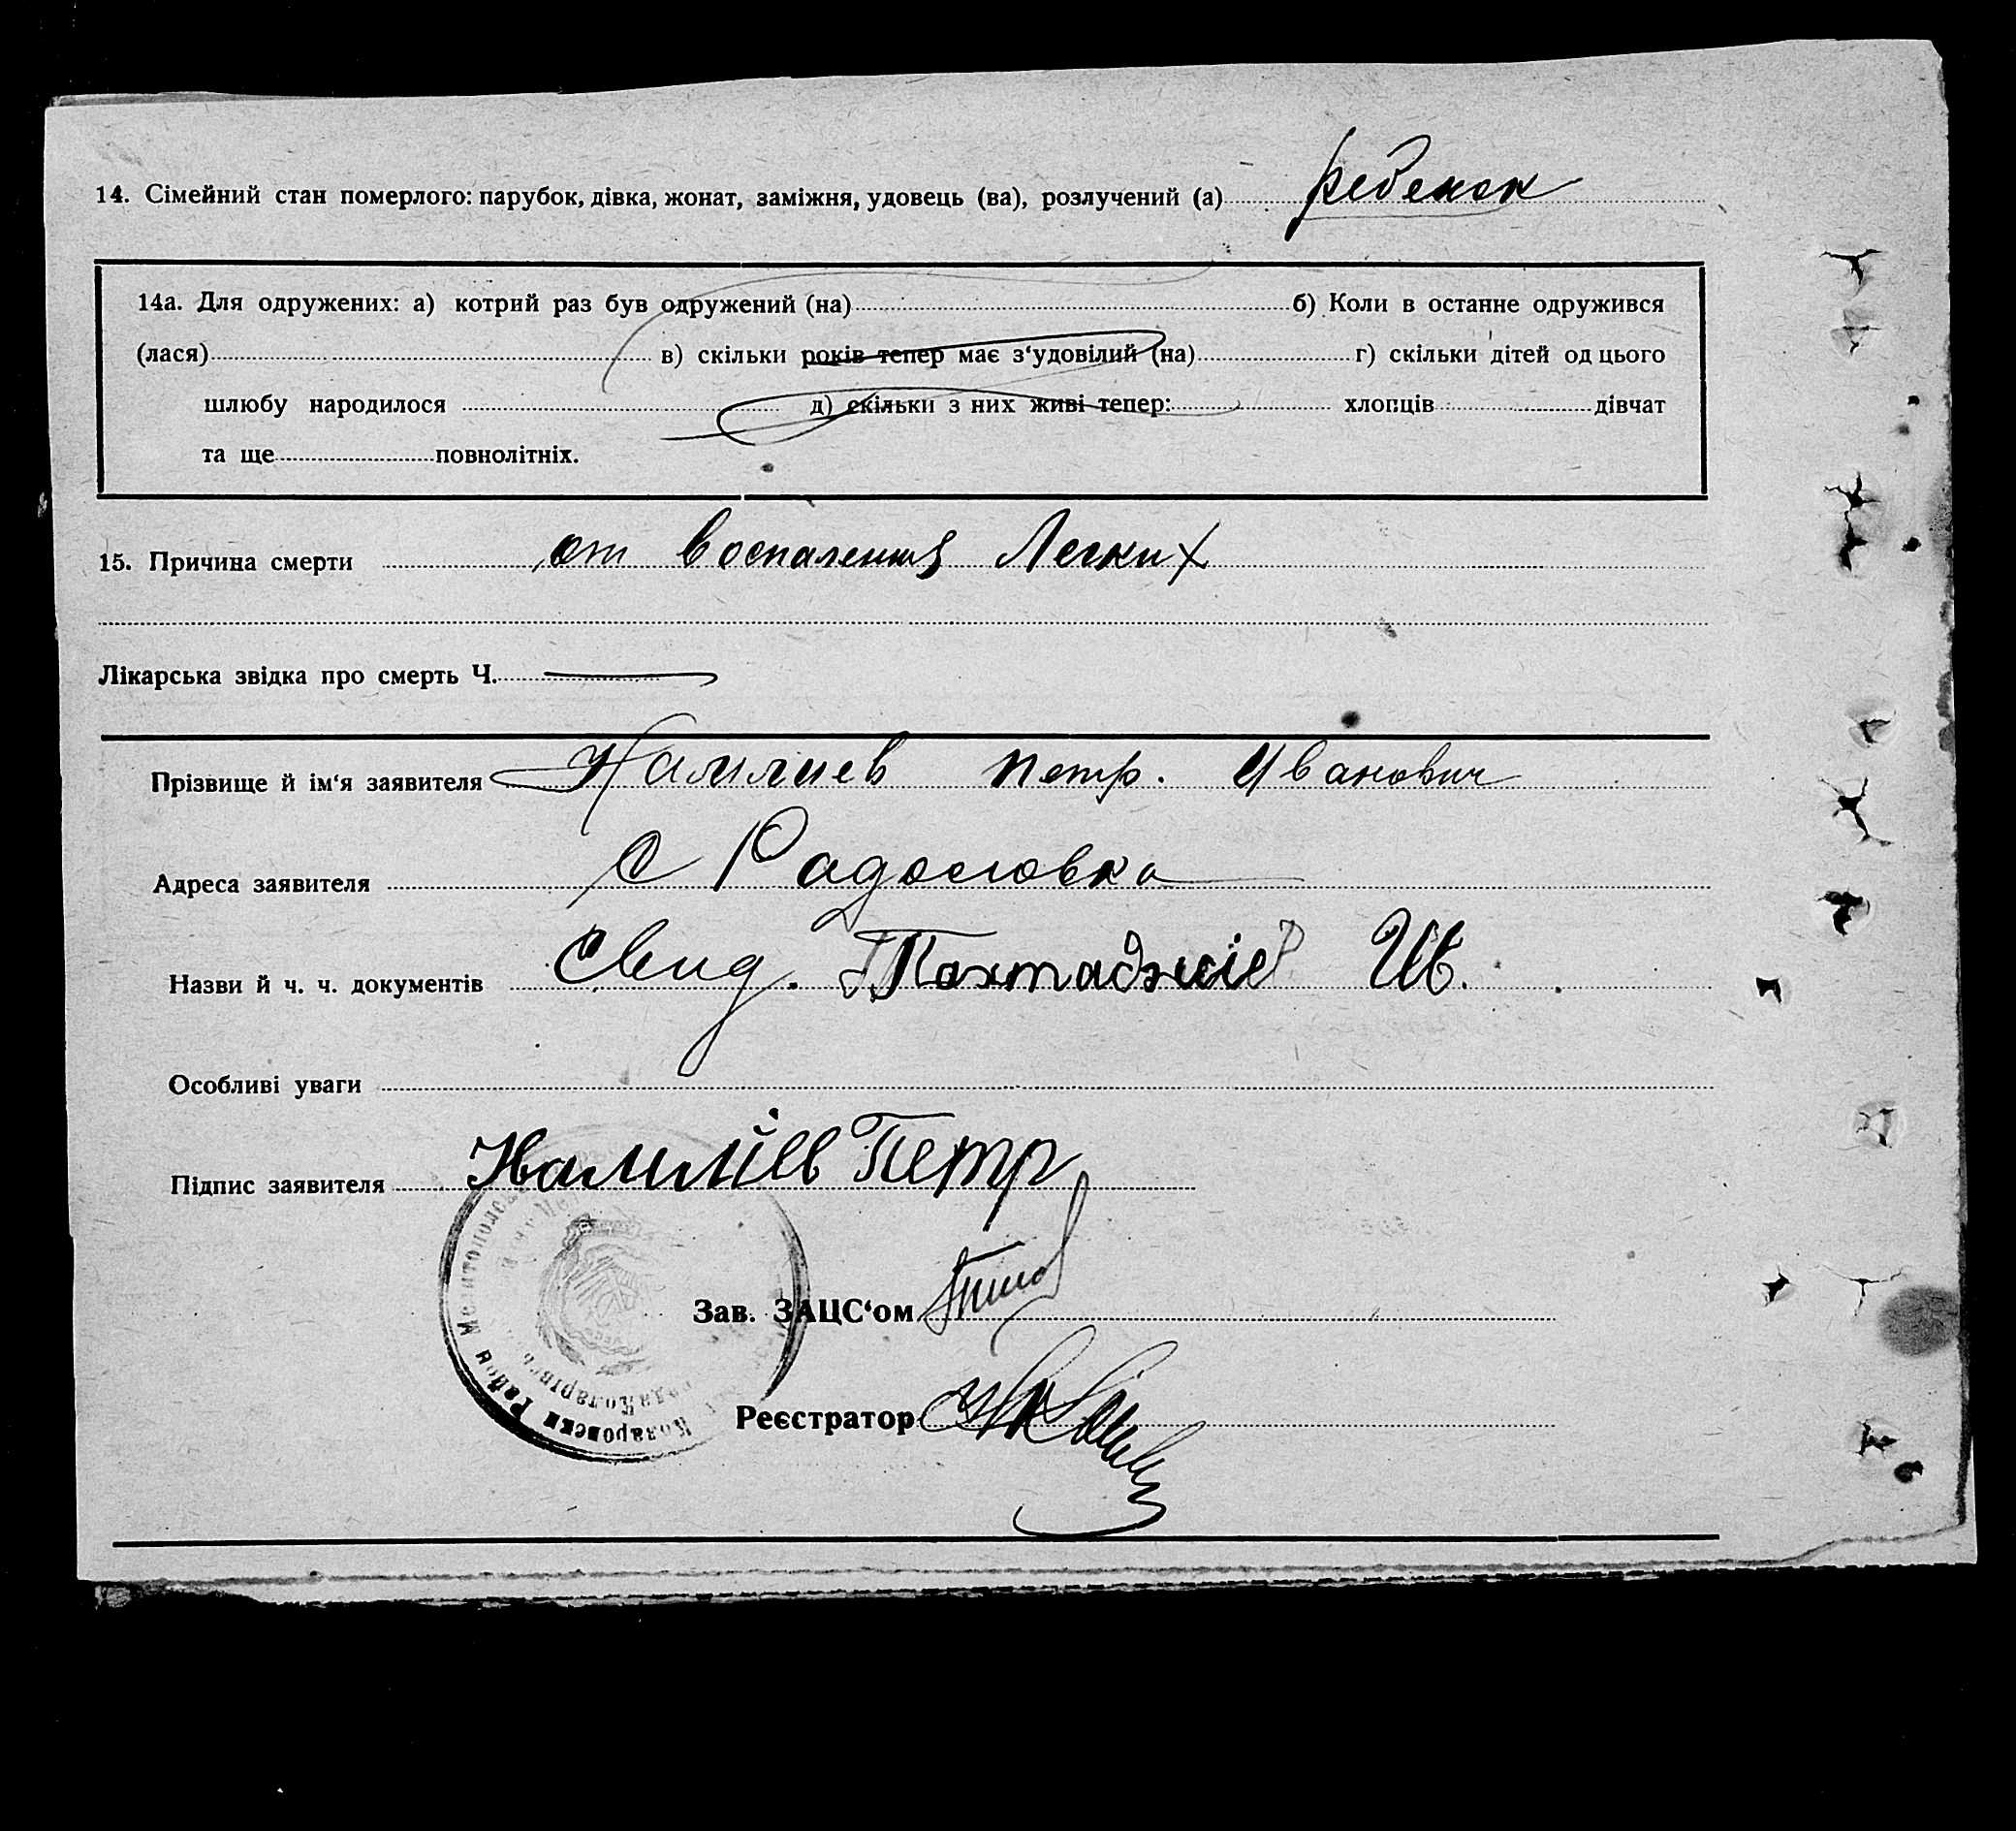 14. Сімейний стан померлого: парубок, дівка, жонат, заміжня, удовець (ва), розлучений (а) ребенок
14а. Для одружених: а) котрий раз був одружений (на) б) Коли в останне одружився
(лася) в) скільки років тепер має з‘удовілий (на) г) скільки дітей од цього
шлюбу народилося д) скільки з них живі тепер: хлопців дівчат
та ще повнолітніх.
15. Причина смерти от воспаления Легких
Лікарська звідка про смерть Ч.
Прізвище й ім‘я заявителя Петр. Иванович
Адреса заявителя с Радоловка
Назви й ч. ч. документів Свид. Ив.
Особливі уваги
Підпис заявителя Петр
Зав. ЗАЦС‘ом
Реєстратор